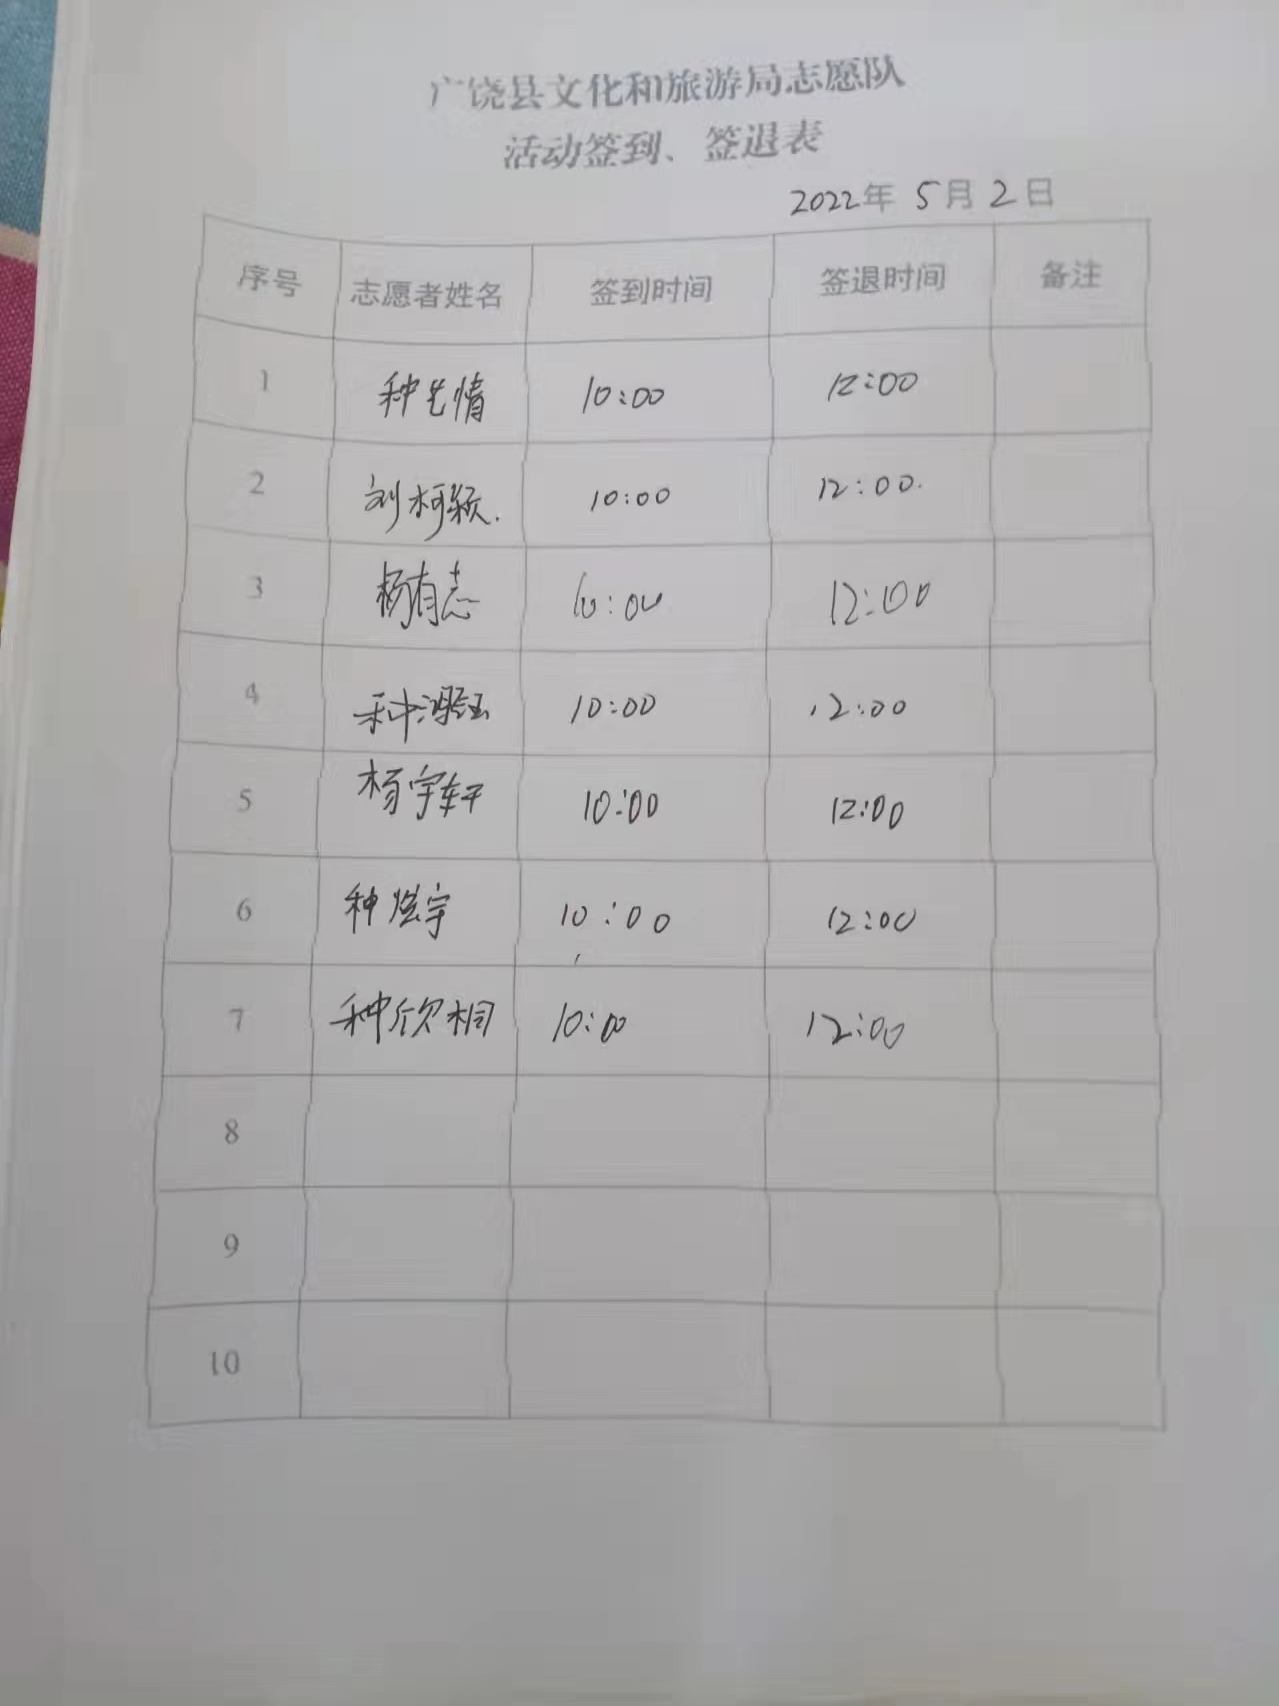 广饶县文化和旅游局志愿队
活动签到、签退表
2022年 5月 2日
序号 志愿者姓名 签到时间 签退时间 备注
1 10:00 12:00
2 刘柯颖. 10:00 12:00.
3 杨有志 10:00 12:00
4 10:00 12:00
5 杨宇轩 10:00 12:00
6 10:00 12:00
7 种欣桐 10:00 12:00
8
9
10